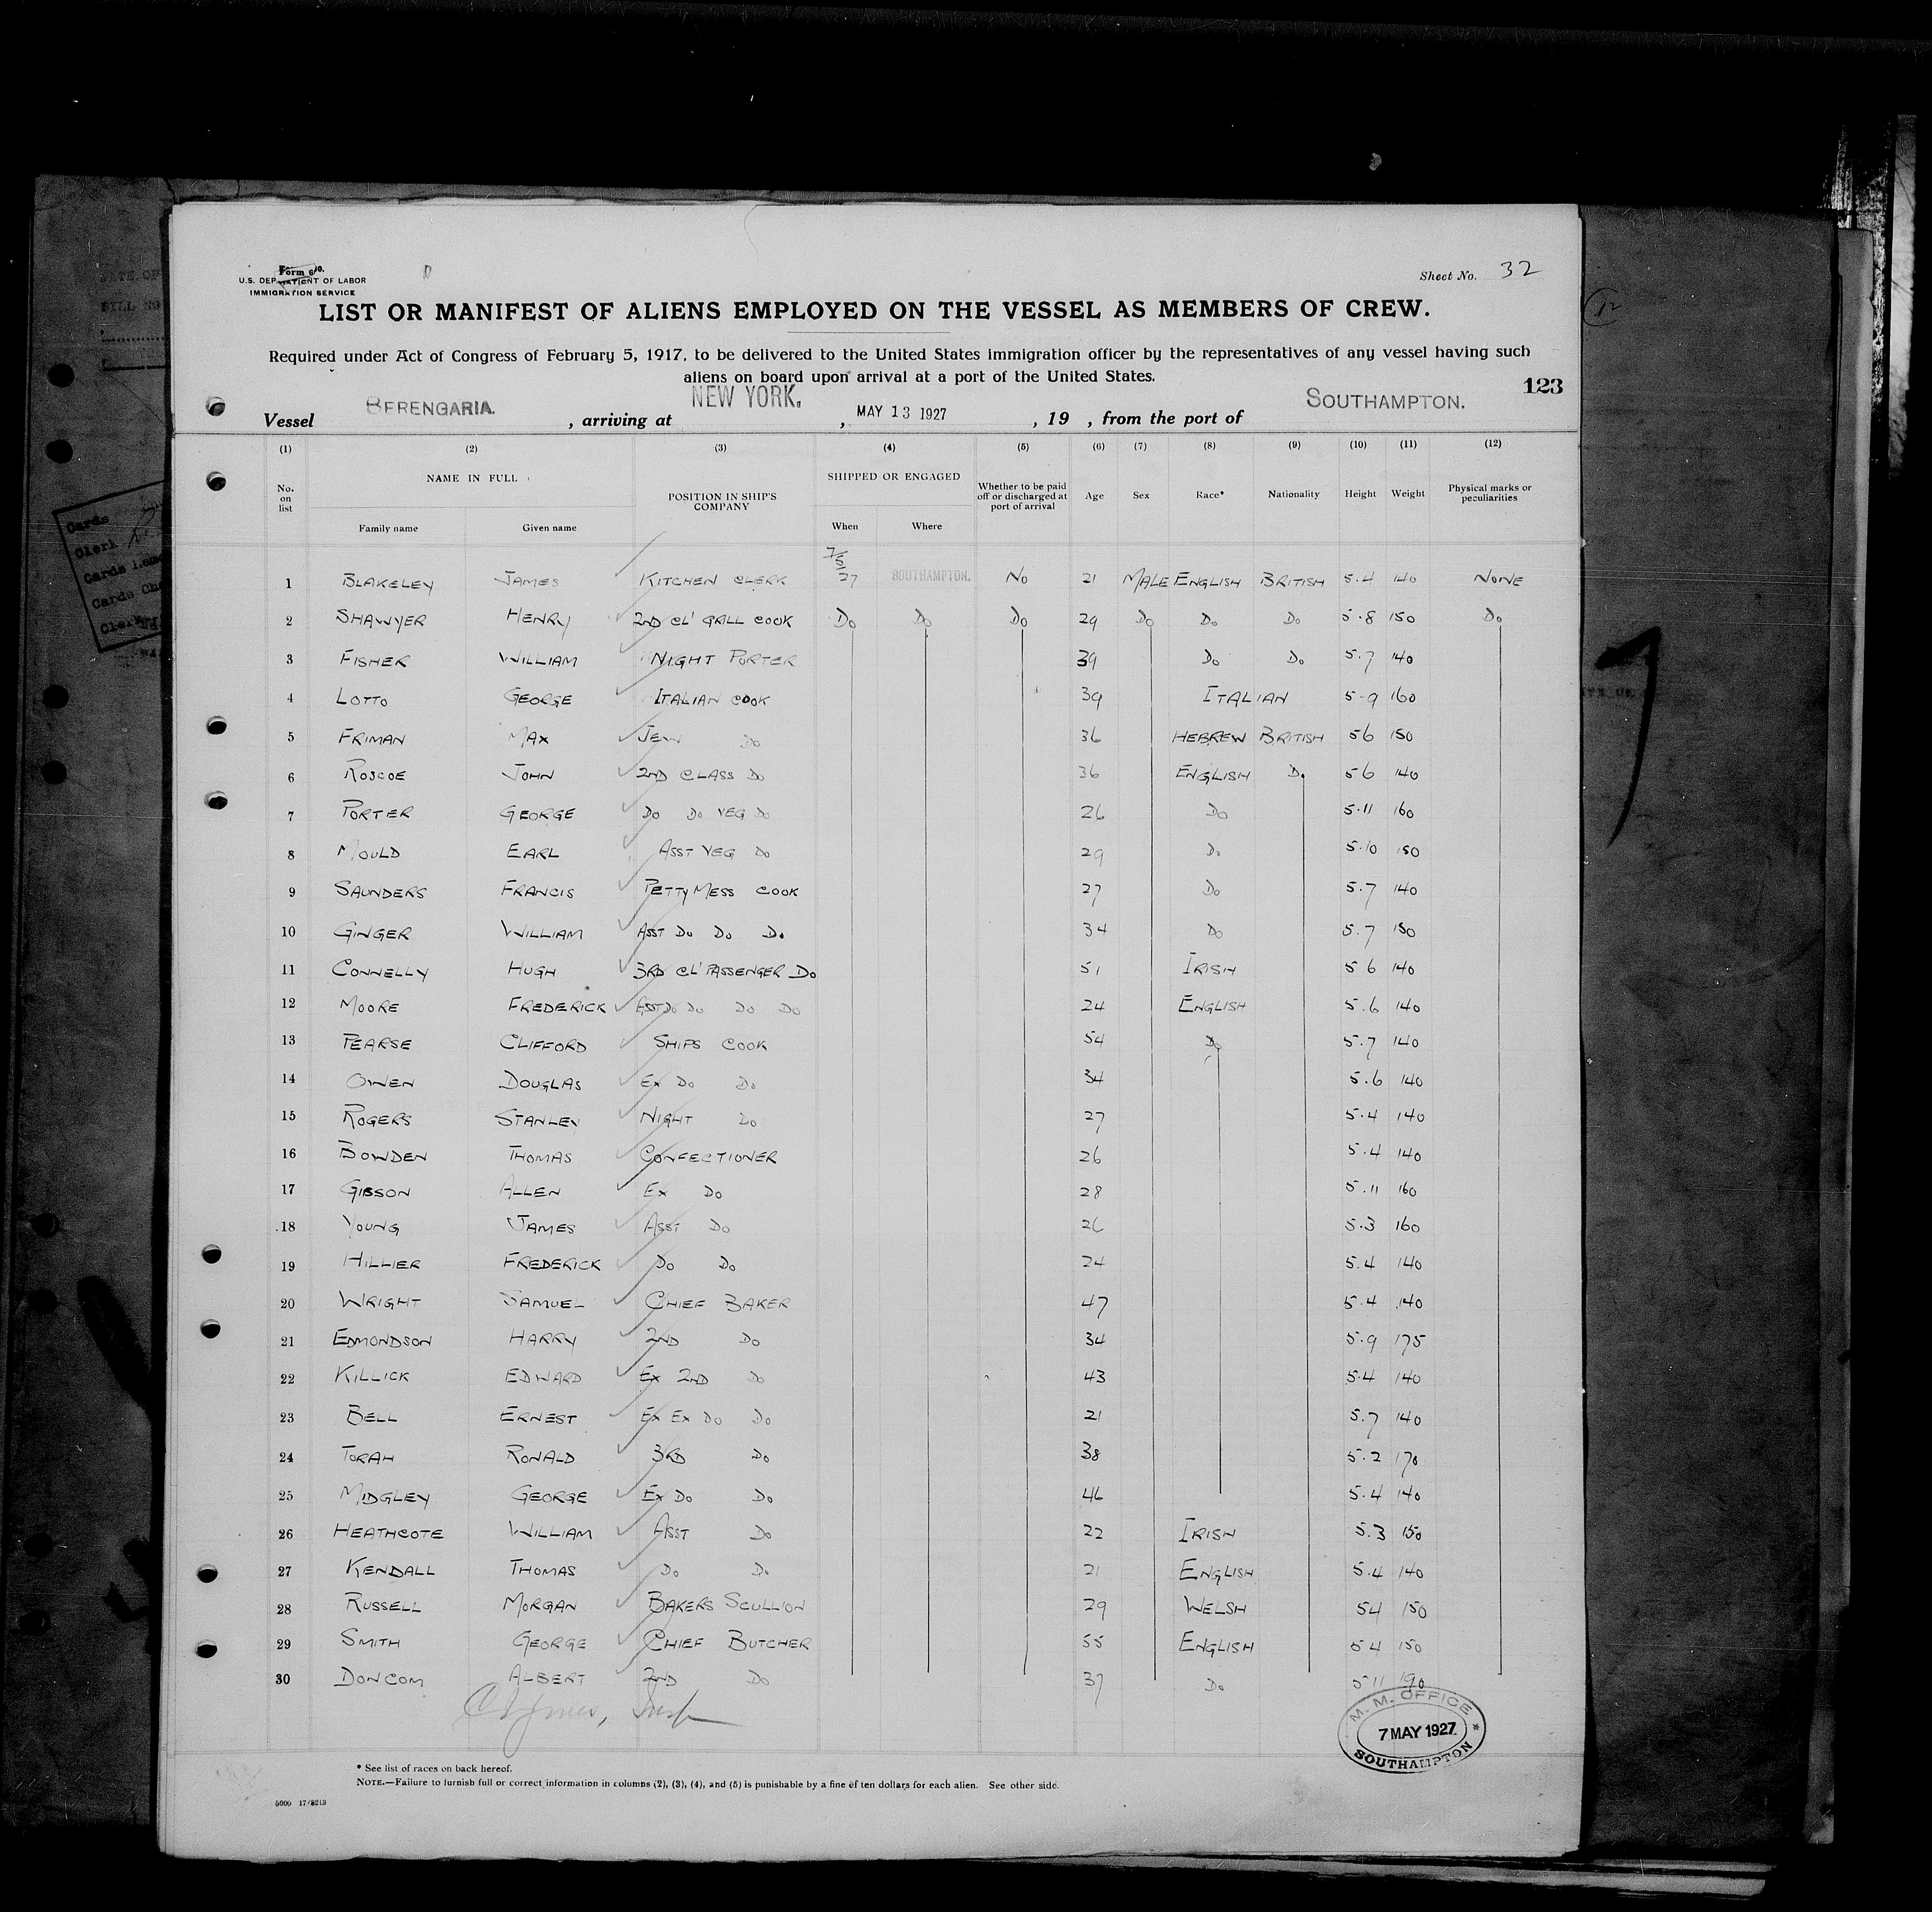 Form 610.
U.S. DEPARTMENT OF LABOR
IMMIGRATION SERVICE
Sheet No. 32
LIST OR MANIFEST OF ALIENS EMPLOYED ON THE VESSEL AS MEMBERS OF CREW.
Required under Act of Congress of February 5, 1917, to be delivered to the United States immigration officer by the representatives of any vessel having such
aliens on board upon arrival at a port of the United States.
123
Vessel BERENGARIA. , arriving at NEW YORK. , MAY 13 1927 , 19 , from the port of SOUTHAMPTON.
(1) (2) (3) (4) (5) (6) (7) (8) (9) (10) (11) (12)
No. on list NAME IN FULL Family name Given name POSITION IN SHIP'S COMPANY SHIPPED OR ENGAGED When Where Whether to be paid off or discharged at port of arrival Age Sex Race* Nationality Height Weight Physical marks or peculiarities
1 BLAKELEY JAMES KITCHEN CLERK 7/5/27 SOUTHAMPTON. NO 21 MALE ENGLISH BRITISH 5.4 140 NONE
2 SHAWYER HENRY 2ND CL' GRILL COOK DO DO DO 29 DO DO DO 5.8 150 DO
3 FISHER WILLIAM NIGHT PORTER 39 DO DO 5.7 140
4 LOTTO GEORGE ITALIAN COOK 39 ITALIAN 5-9 160
5 FRIMAN MAX JEW DO 36 HEBREW BRITISH 56 150
6 ROSCOE JOHN 2ND CLASS DO 36 ENGLISH DO 56 140
7 PORTER GEORGE DO DO VEG DO 26 DO 5.11 160
8 MOULD EARL ASST VEG DO 29 DO 5.10 150
9 SAUNDERS FRANCIS PETTY MESS COOK 27 DO 5.7 140
10 GINGER WILLIAM ASST DO DO DO 34 DO 5.7 150
11 CONNELLY HUGH 3RD CL' PASSENGER DO 51 IRISH 56 140
12 MOORE FREDERICK ASST DO DO DO DO 24 ENGLISH 5.6 140
13 PEARSE CLIFFORD SHIPS COOK 54 DO 5.7 140
14 OWEN DOUGLAS EX DO DO 34 5.6 140
15 ROGERS STANLEY NIGHT DO 27 5.4 140
16 BOWDEN THOMAS CONFECTIONER 26 5.4 140
17 GIBSON ALLEN EX DO 28 5.11 160
18 YOUNG JAMES ASST DO 26 5.3 160
19 HILLIER FREDERICK DO DO 24 5.4 140
20 WRIGHT SAMUEL CHIEF BAKER 47 5.4 140
21 EDMONDSON HARRY 2ND DO 34 5.9 175
22 KILLICK EDWARD EX 2ND DO 43 5.4 140
23 BELL ERNEST EX EX DO DO 21 5.7 140
24 TORAH RONALD 3RD DO 38 5.2 170
25 MIDGLEY GEORGE EX DO DO 46 5.4 140
26 HEATHCOTE WILLIAM ASST DO 22 IRISH 5.3 150
27 KENDALL THOMAS DO DO 21 ENGLISH 5.4 140
28 RUSSELL MORGAN BAKERS SCULLION 29 WELSH 54 150
29 SMITH GEORGE CHIEF BUTCHER 55 ENGLISH 54 150
30 DONCOM ALBERT 2ND DO 37 DO 5 11 190
M. M. OFFICE
7 MAY 1927
SOUTHAMPTON
* See list of races on back hereof.
NOTE.—Failure to furnish full or correct information in columns (2), (3), (4), and (5) is punishable by a fine of ten dollars for each alien. See other side.
5000 17/8213